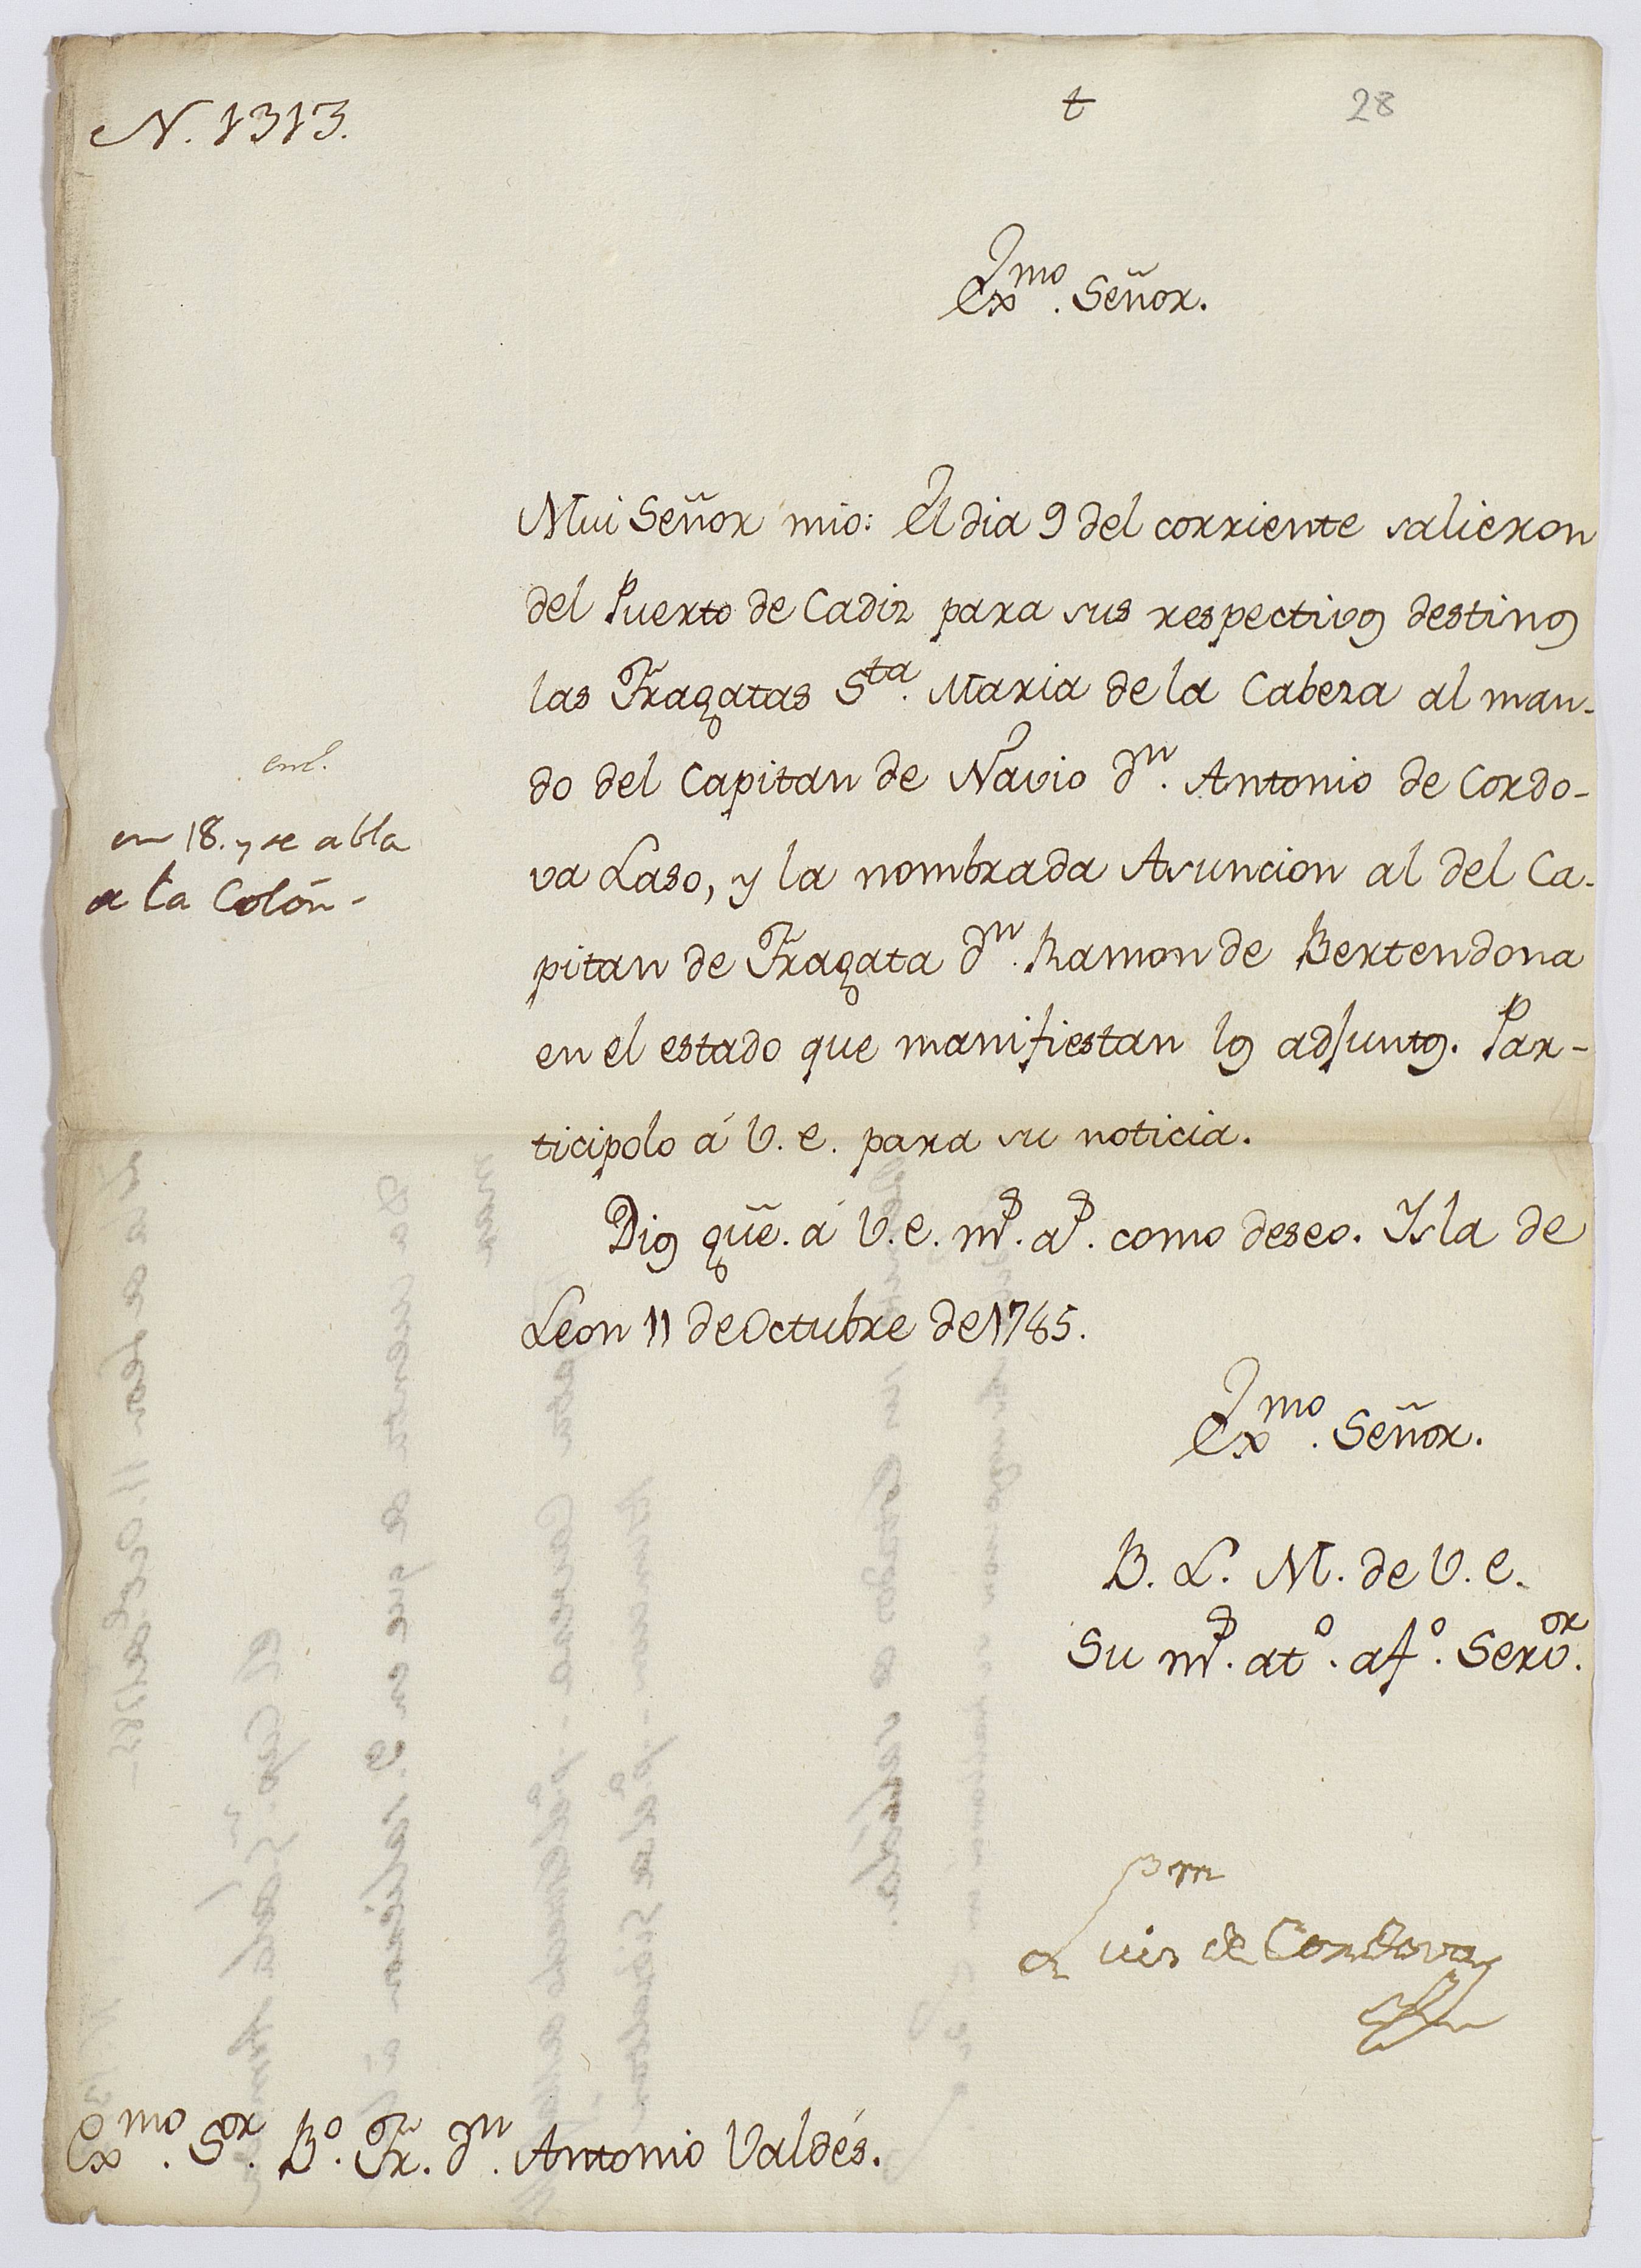 N. 1313.
t
28
Exmo. Señor.
Mui Señor mio: El dia 9 del corriente salieron
del Puerto de Cadiz para sus respectivos destinos
las Fragatas Sta. Maria de la Cabeza al man-
do del Capitan de Navio Dn. Antonio de Cordo-
va Laso, y la nombrada Asuncion al del Ca-
pitan de Fragata Dn. Ramon de Bertendona
en el estado que manifiestan los adjuntos. Par-
ticipolo á V. E. para su noticia.
en 18. y se abla
a la Colón -
Dios gũe. á V. E. ms. as. como deseo. Ysla de
Leon 11 de Octubre de 1785.
Exmo. Señor.
B. L. M. de V. E.
Su ms. ato. afo. Servor.
Luis de Cordova
Exmo. Sor. Bo. Fr. Dn. Antonio Valdés.